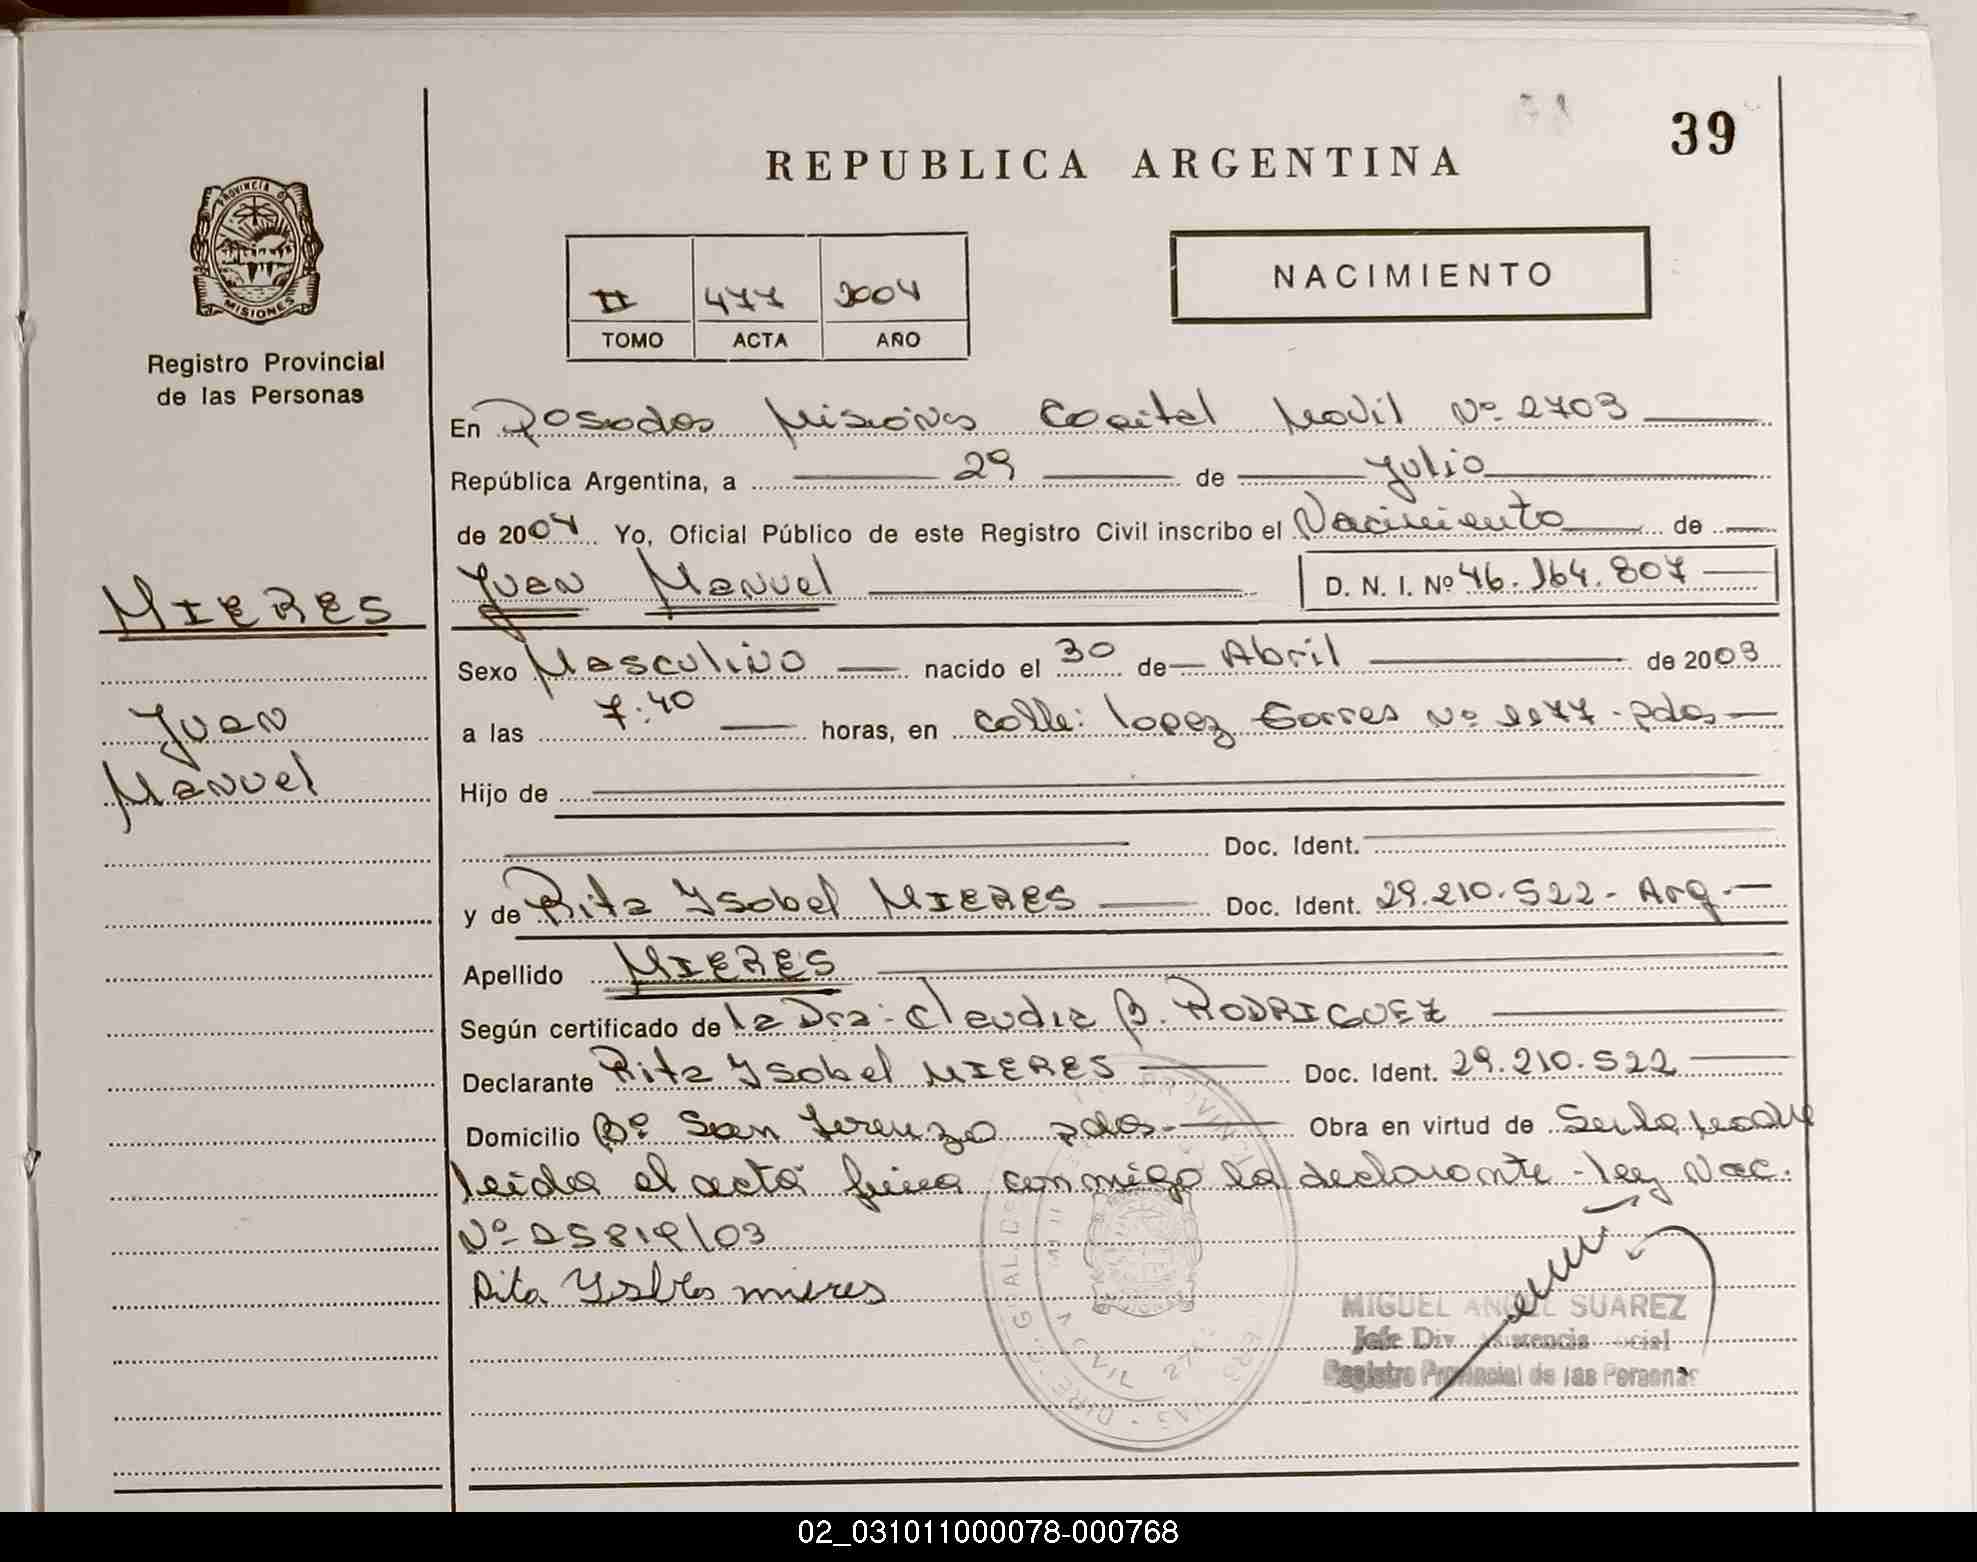 39
REPUBLICA ARGENTINA
PROVINCIA D
MISIONES
Registro Provincial
de las Personas
NACIMIENTO
II 477 2004
TOMO ACTA AÑO
En Posadas Misiones Capital Movil Nº 2703
República Argentina, a 29 de Julio
de 2004 Yo, Oficial Público de este Registro Civil inscribo el Nacimiento de
MIERES
Juan Manuel D. N. I. Nº 46.164.807
Sexo Masculino nacido el 30 de Abril de 2003
Juan
Manuel
a las 7:40 horas, en calle: Lopez Torres Nº 1177 - pdas
Hijo de
Doc. Ident.
y de Rita Ysabel MIERES Doc. Ident. 29.210.522 - Arg.
Apellido MIERES
Según certificado de la Dra. Claudia B. RODRIGUEZ
Declarante Rita Ysabel MIERES Doc. Ident. 29.210.522
Domicilio Bº San Lorenzo pdas. Obra en virtud de Ser la madre
leida el acta firma conmigo la declarante - ley Nac.
Nº 25819/03
Rita mieres
MIGUEL ANGEL SUAREZ
Jefe Div. Asistencia Social
Registro Provincial de las Personas
02_031011000078-000768